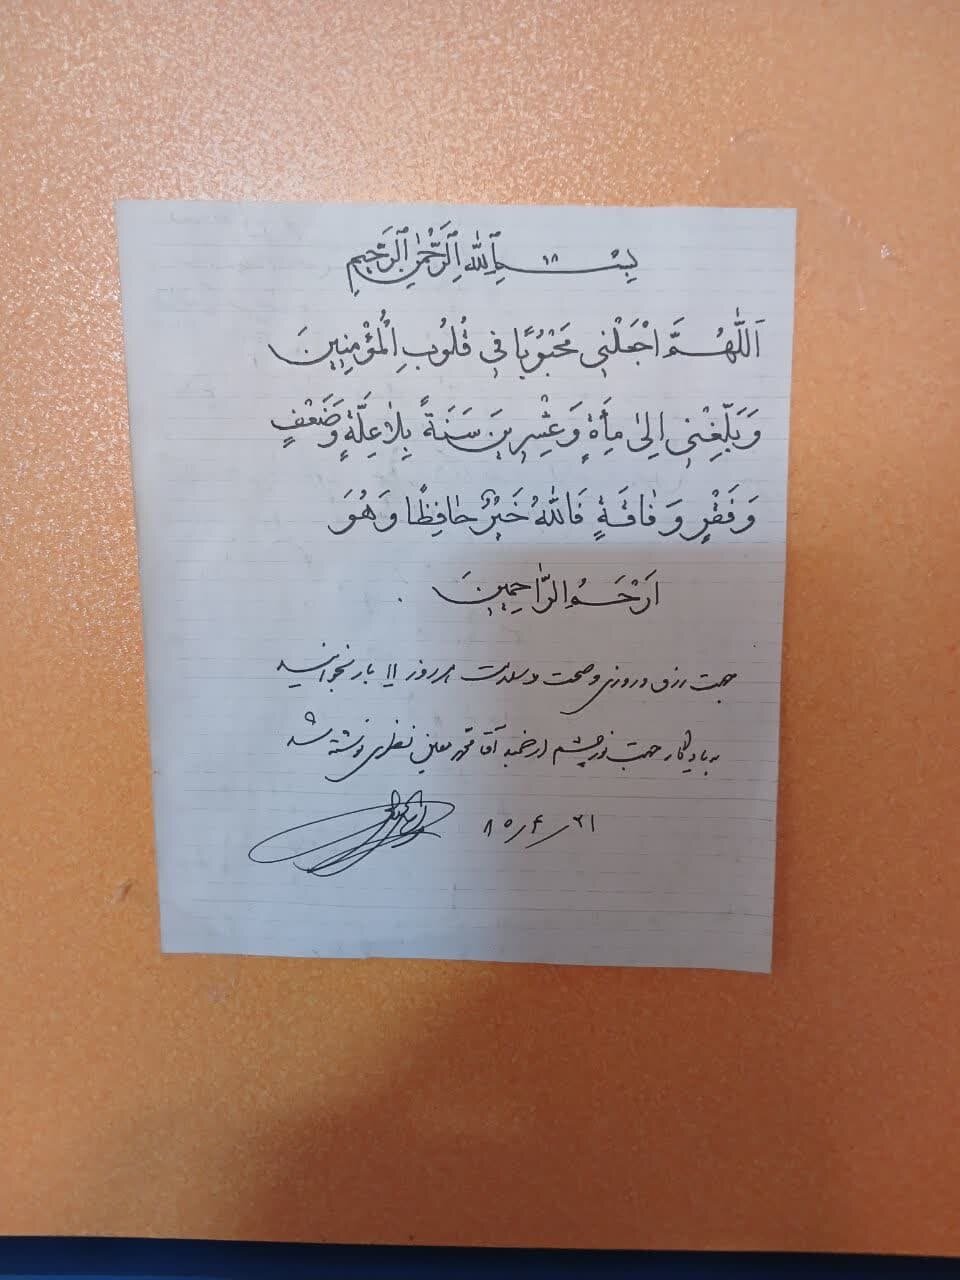 بِسْمِ ٱللّٰهِ ٱلرَّحْمٰنِ ٱلرَّحِيمِ
اَللّٰهُمَّ اجْعَلْنِى مَحْبُوبًا فِى قُلُوبِ الْمُؤْمِنِينَ
وَبَلِّغْنِى اِلىٰ مِأَةٍ وَعِشْرِينَ سَنَةً بِلاٰ عِلَّةٍ وَضَعْفٍ
وَفَقْرٍ وَفٰاقَةٍ فَاللّٰهُ خَيْرٌ حٰافِظًا وَهُوَ
اَرْحَمُ الرّٰاحِمِينَ .
جهت رزق و روزى و صحت و سلامت هر روز ١١ بار بخوانيد
به يادگار جهت نورچشم ارجمند آقا محمد معين نظرى نوشته شد
٨٥/٤/٢١